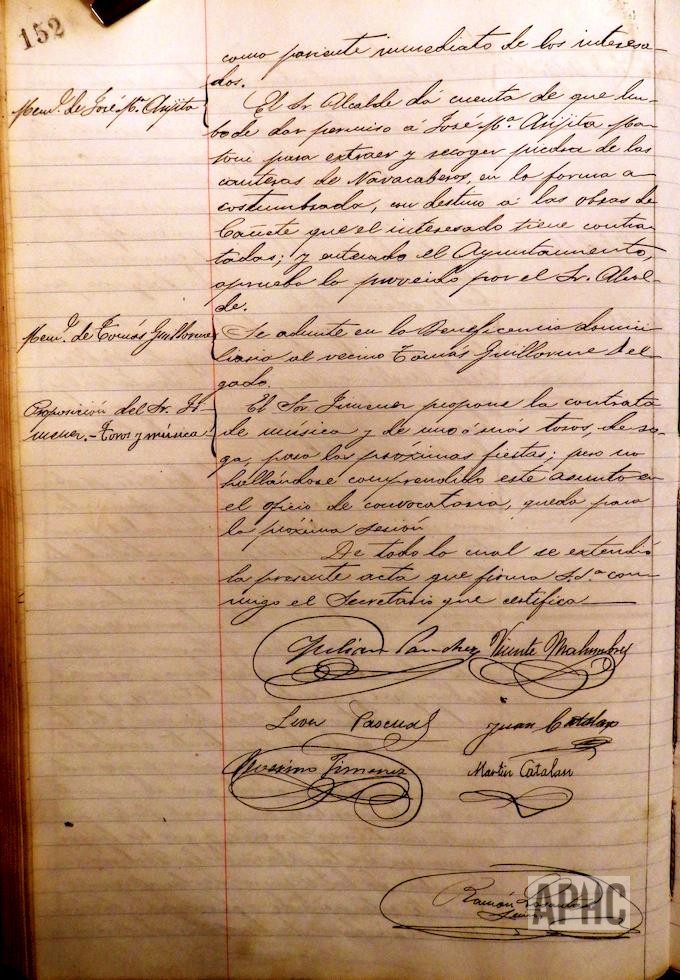 152
como pariente inmediato de los interesa-
dos.
Mem.l de José M.ª Arijita
El Sr. Alcalde dá cuenta de que hu-
bo de dar permiso á José M.ª Arijita Ma-
toni para extraer y recoger piedra de las
canteras de Navacaberos, en la forma a-
costumbrada, con destino á las obras de
Cañete que el interesado tiene contra-
tadas; y enterado el Ayuntamiento,
aprueba lo proveido por el Sr. Alcal-
de.
Mem.l de Tomás Guillorme
Se admite en la Beneficencia domici-
liaria al vecino Tomás Guillorme Del-
gado.
Proposición del Sr. Ji-
menez.- Toros y música
El Sor Jimenez propone la contrata
de música y de uno ó más toros, de so-
ga, para las próximas fiestas; pero no
hallándose comprendido este asunto en
el oficio de convocatoria, queda para
la próxima sesión
De todo lo cual se extendió
la presente acta que firma S.S.ª con-
migo el Secretario que certifica
Julian Sanchez Vicente
Leon Pascual Juan Catalan
Jimenez Martin Catalan
Ramón
APHC